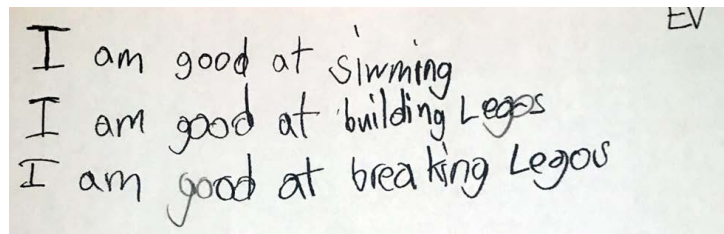 EV
I am good at siwming
I am good at building Legos
I am good at breaking Legos